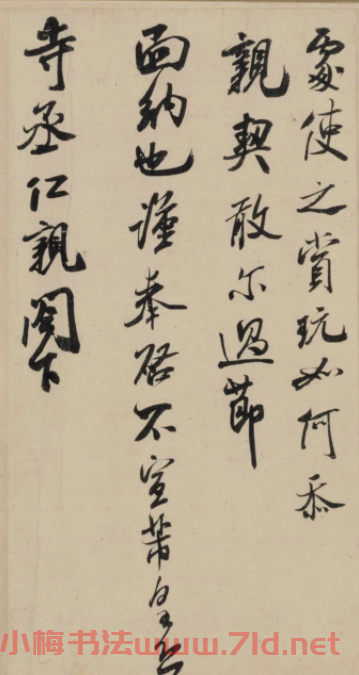 處使之賞玩如何忝
親契敢尔過節
面納也謹奉啓不宣芾皇恐
寺丞仁親閣下
小梅书法www.7ld.net